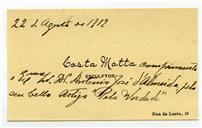 22 de Agosto de 1912
Costa Motta cumprimenta
ESCULPTOR
o Exmo Sr. Dr. Antonio José d'Almeida pelo
seu bello Artigo "Pela Verdade"
Rua da Lapa,